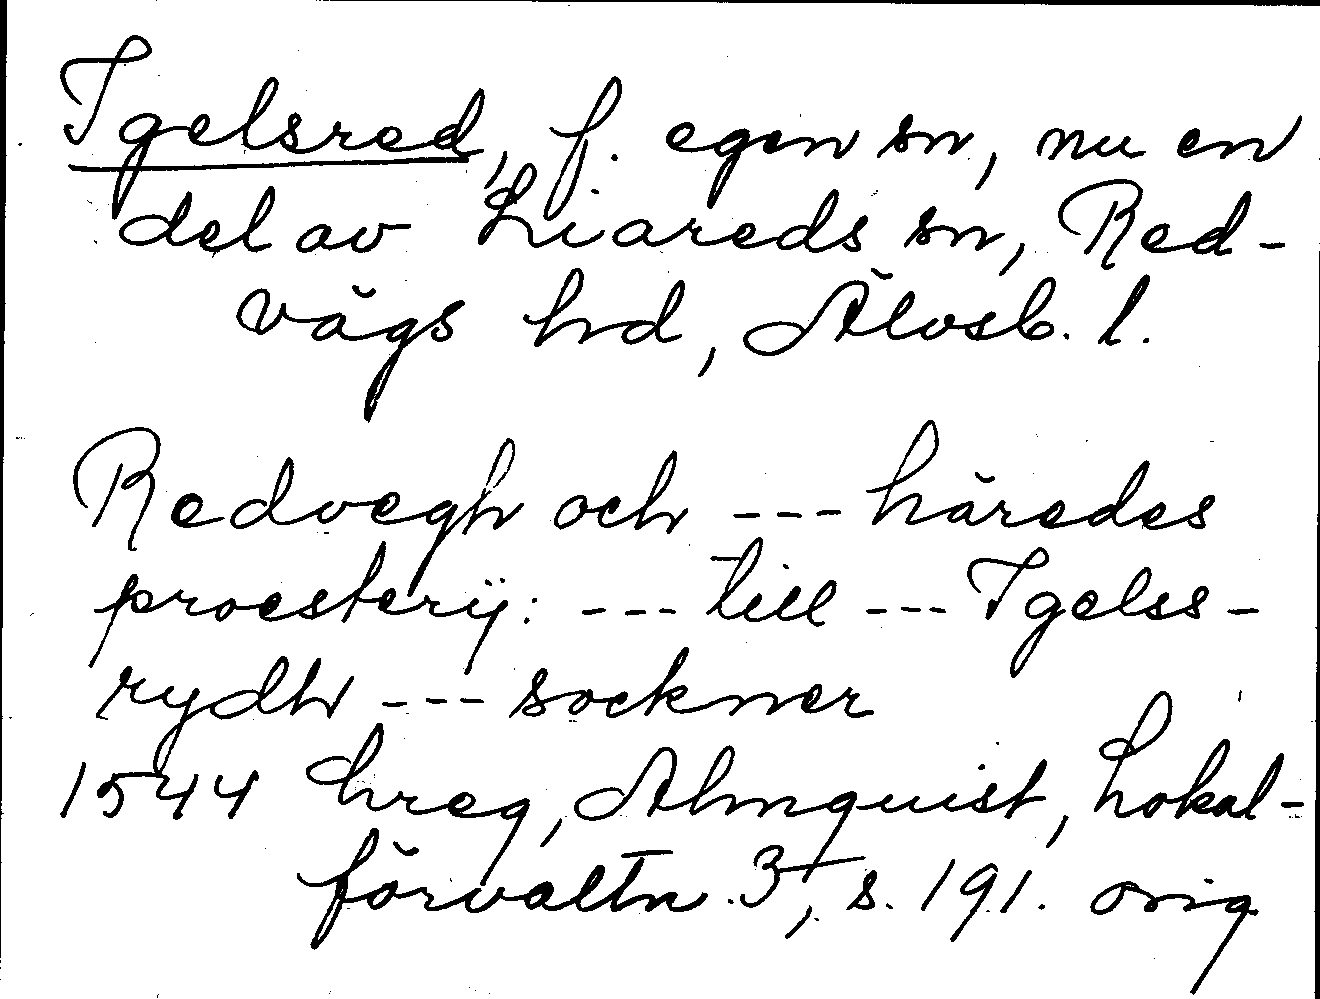 Igelsred, f. egen sn, nu en
del av Liareds sn, Red-
vägs hd, Älvsb. l.
Redvegh och --- häredes
proesterij: --- till --- Igelss-
rydh --- sockner
1544 hreg, Almquist, Lokal-
förvaltn. 3, s. 191. orig